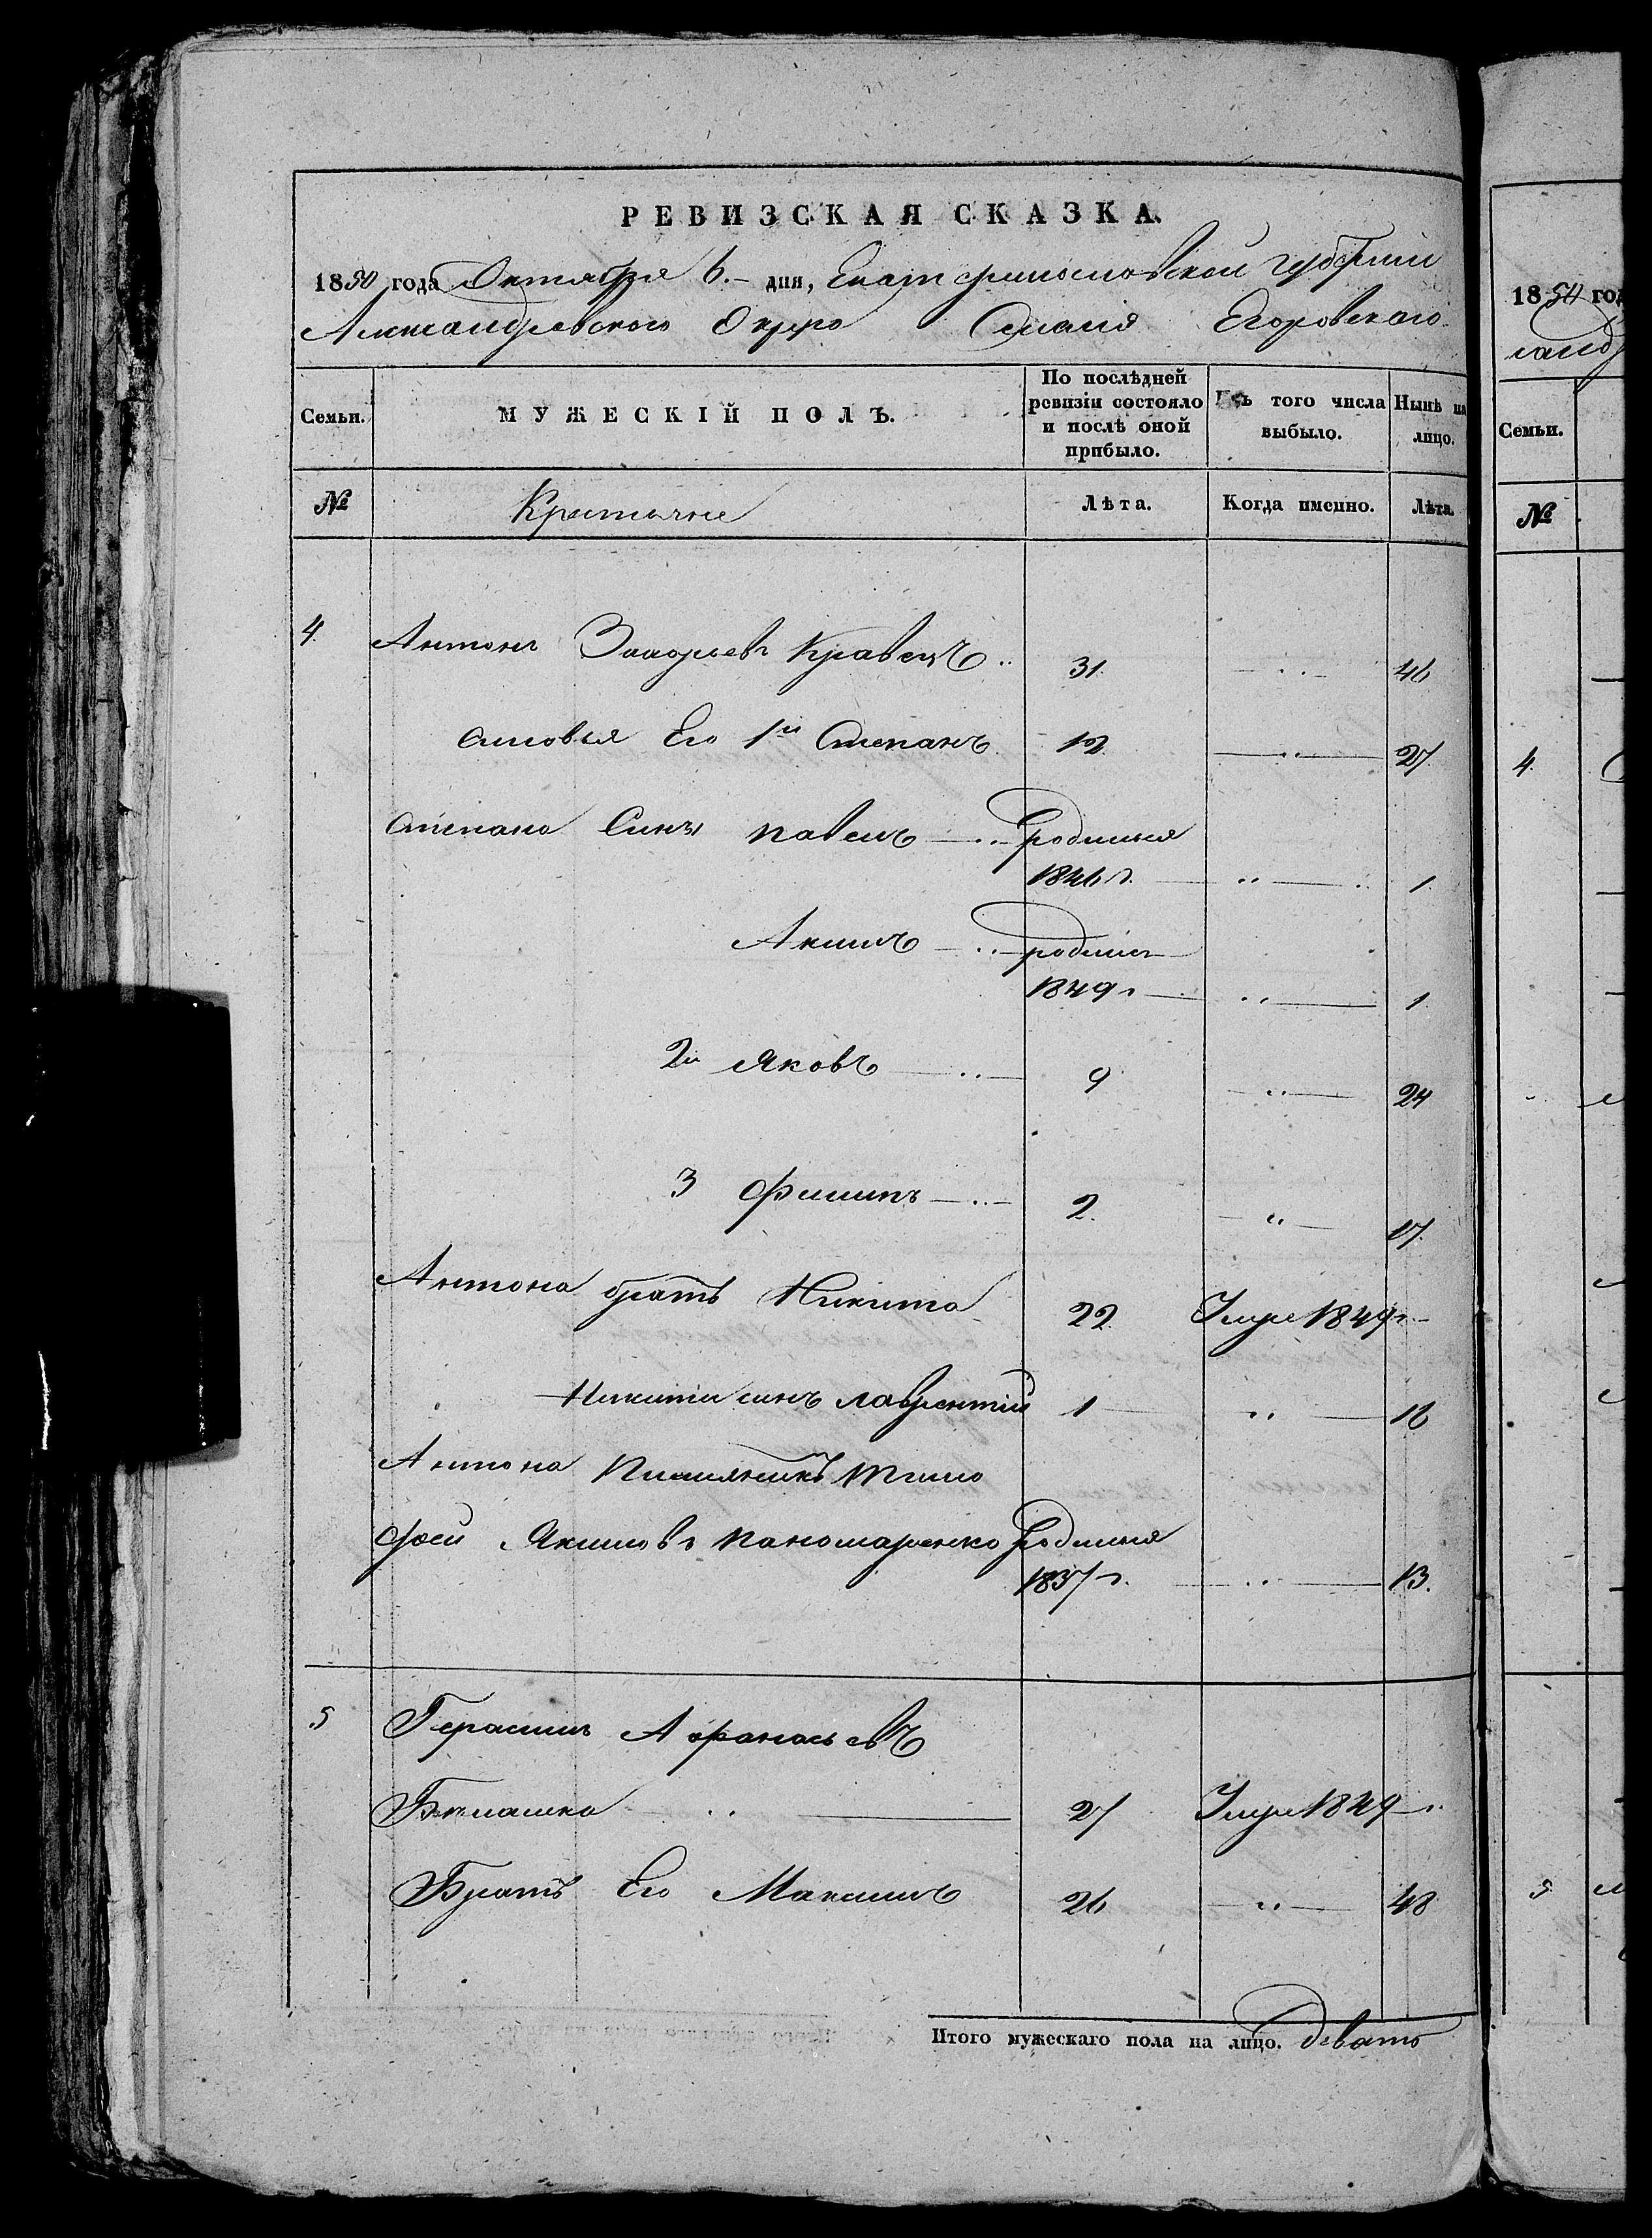 РЕВИЗСКАЯ СКАЗКА.
1850 года Октября 6.- дня, Екатеринославской губернии
Александровского Округа Селенія Егоровского
Семьи. МУЖЕСКІЙ ПОЛЪ. По послѣдней ревизіи состояло и послѣ оной прибыло. Изъ того числа выбыло. Нынѣ на лицо.
№ Крестьяне Лѣта. Когда именно. Лѣта.
4. Антонъ Захарьевъ Кравецъ 31. 46
сыновья Его 1й Степанъ 12. 27.
Степана Сынъ павелъ родился
1846 г. 1.
Акимъ родился
1849 г 1
2й Яковъ 9 24
3 Филипъ 2. 17.
Антона братъ Никита 22. Умре 1849 г.
Никиты сынъ лаврентий 1 16
Антона Племяникъ Тимо
фей Якимовъ паномаренко родился
1837 г. 13.
5 Герасимъ Афанасьевъ
Бѣлашка 27 Умре 1849 г.
Братъ Его Максимъ 26 48
Итого мужескаго пола на лицо. девять
1850 год
лександ
Семьи.
№
4.
5